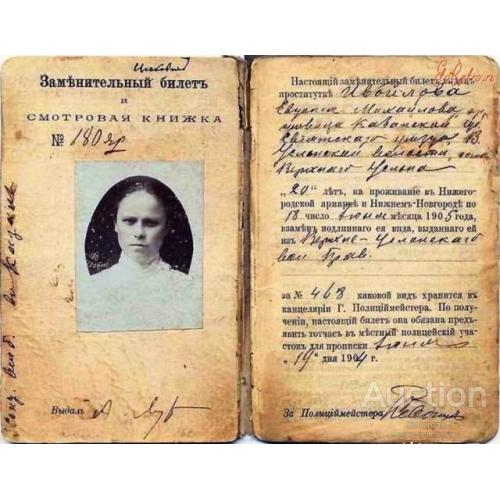 Замѣнительный билетъ
и
СМОТРОВАЯ КНИЖКА
№ 180
Выдалъ
Настоящій замѣнительный билетъ выданъ
проституткѣ Ивойлова
Евгенія Михайлова, кр
Казанской
Свіяжскаго уѣзда, В.
Услонской волости, села
Верхняго Услона
„20" лѣтъ, на проживаніе въ Нижего-
родской ярмаркѣ и Нижнемъ-Новгородѣ по
18 число іюня мѣсяца 1905 года,
взамѣнъ подлиннаго ея вида, выданнаго ей
изъ Верхне-Услонскаго
вол. Прав.
за № 463 каковой видъ хранится въ
канцеляріи Г. Полиціймейстера. По полу-
ченіи, настоящій билетъ она обязана предъ-
явить тотчасъ въ мѣстный полицейскій уча-
стокъ для прописки
„19" дня 1904 г.
За Полиціймейстера
Auction